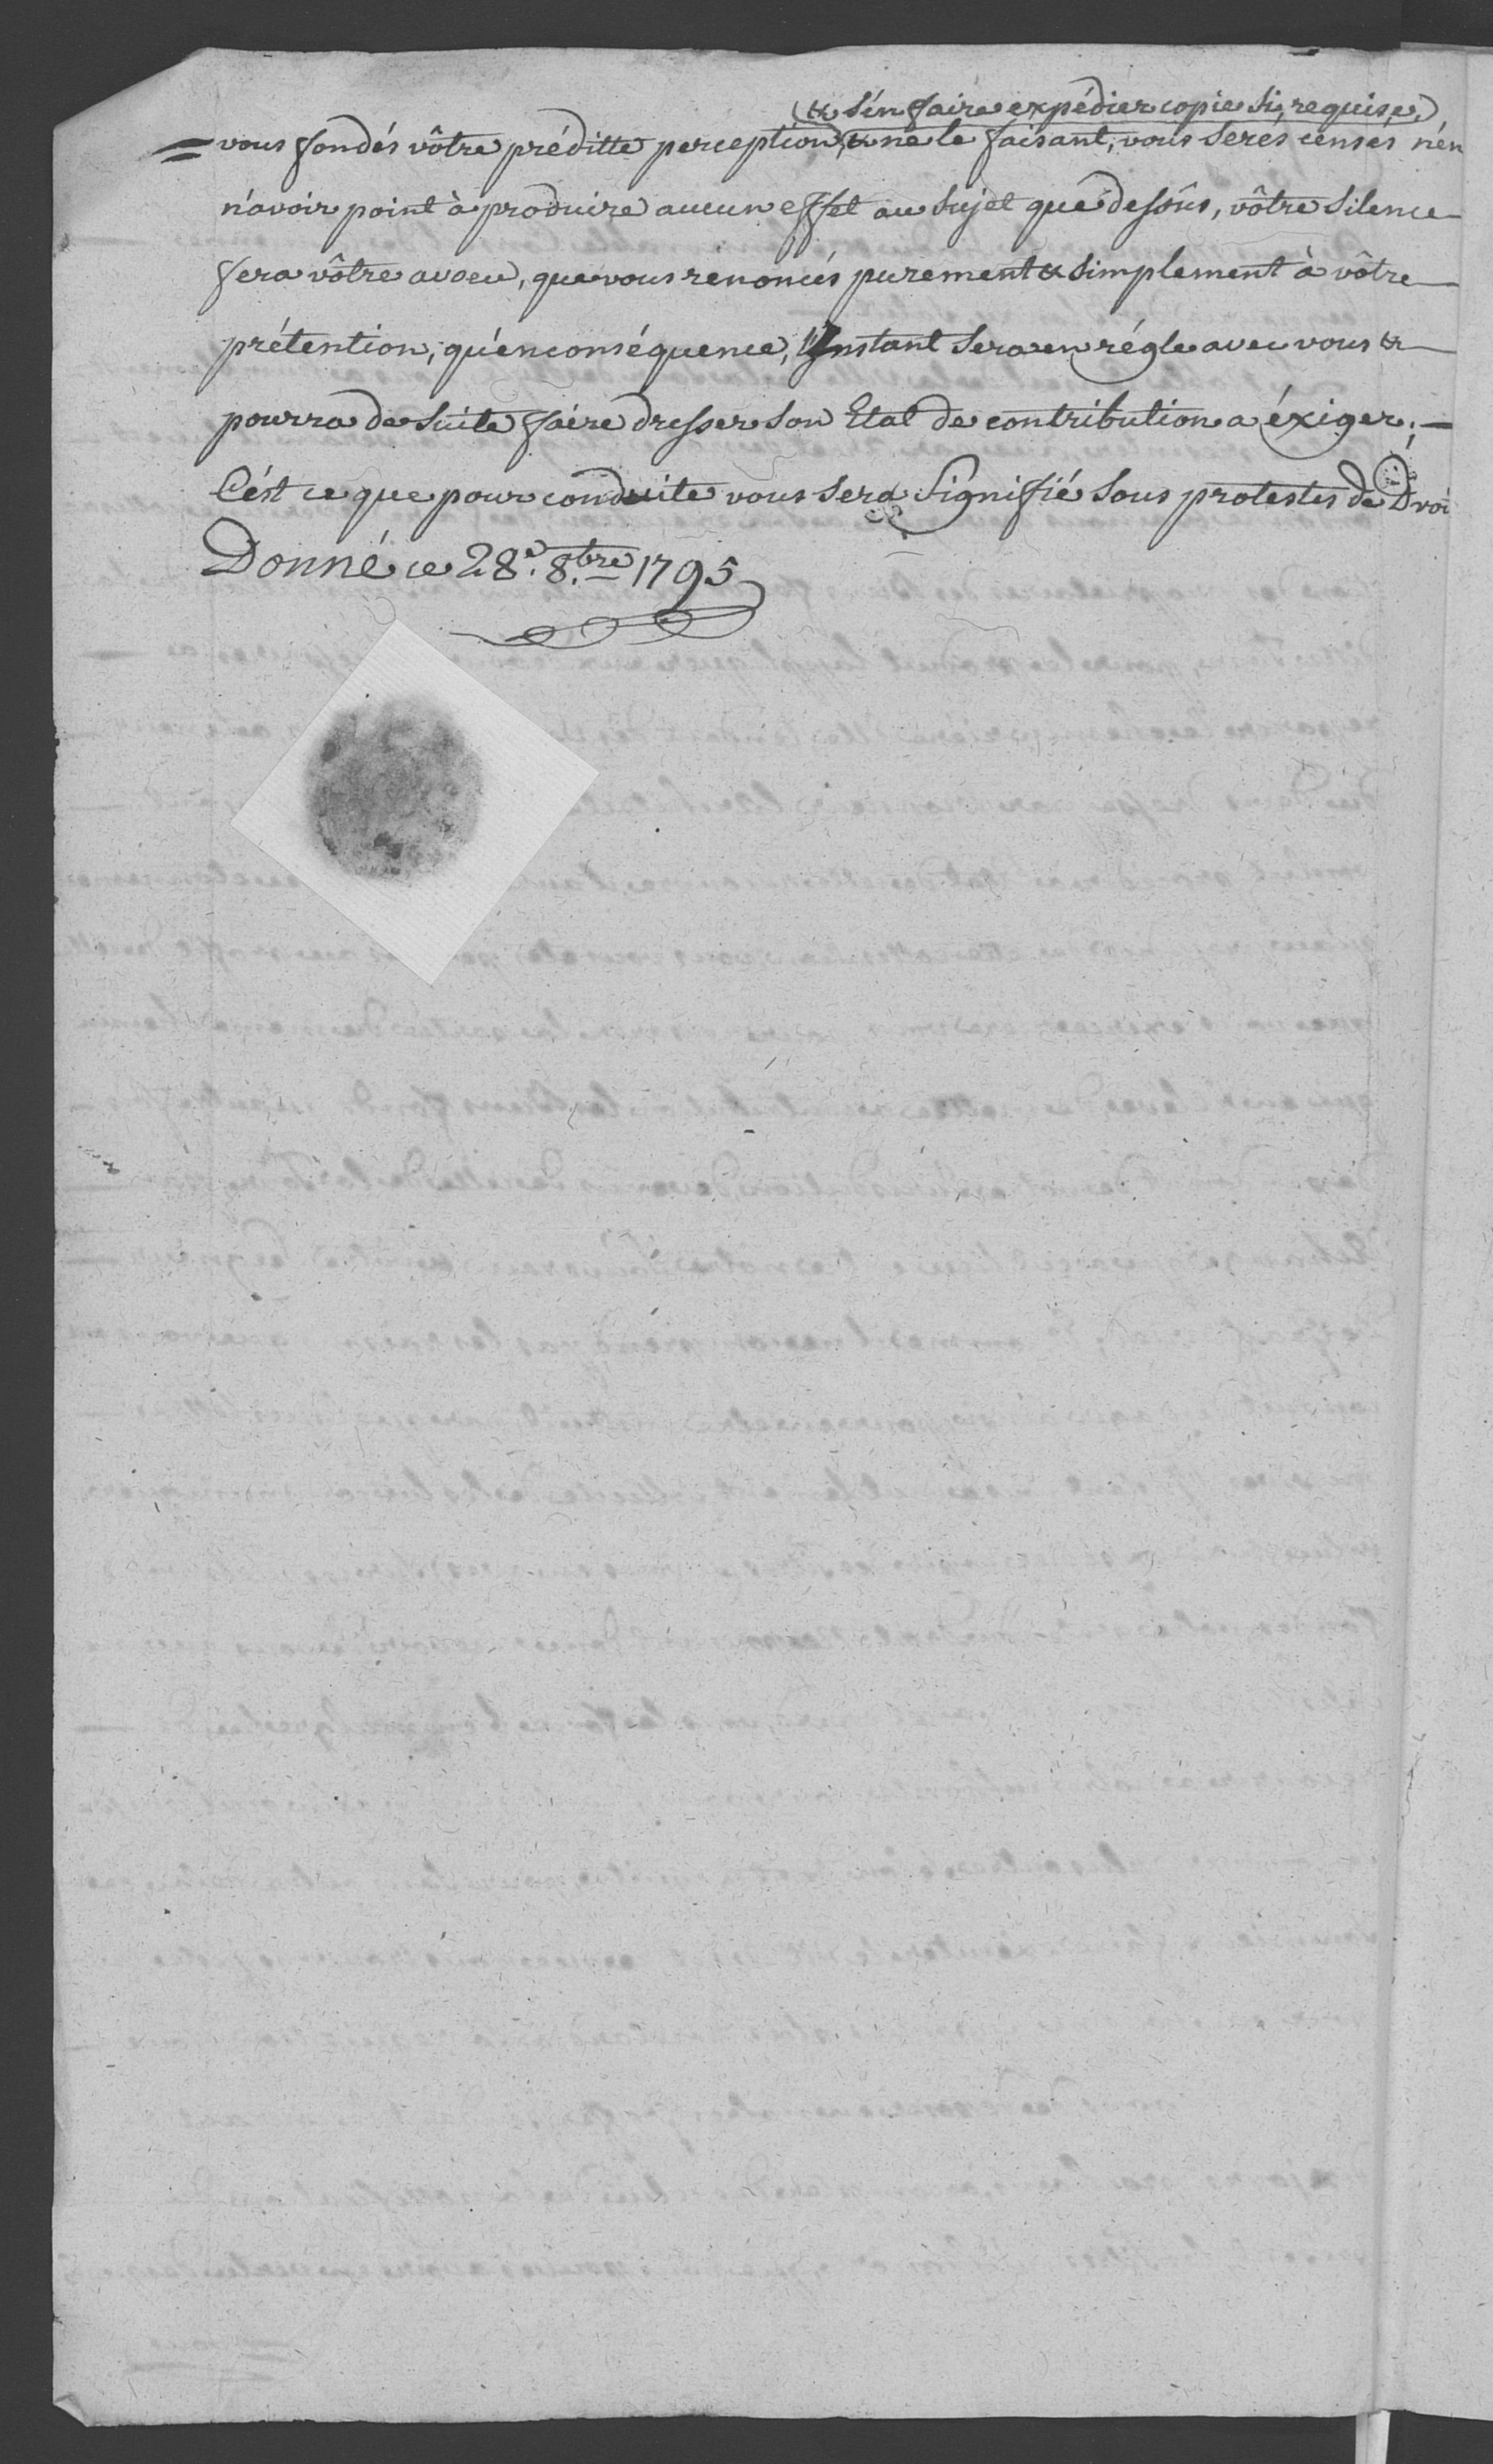 (& s'én faire expédier copie si, requise,)
= vous fondés vôtre préditte perception, & ne le faisant, vous serés censés n'én
n'avoir point à produire aucun effet au sujet que dessûs, vôtre silence
sera vôtre avoeu, que vous renoncés purement & simplement à vôtre
prétention, qu'en conséquence, l'Instant sera en régle avec vous &
pourra de suite faire dresser son Etat de contribution a éxiger;
C'ést ce que pour conduite vous sera signifié sous protestes de Droi
Donné ce 28.e 8.bre 1795